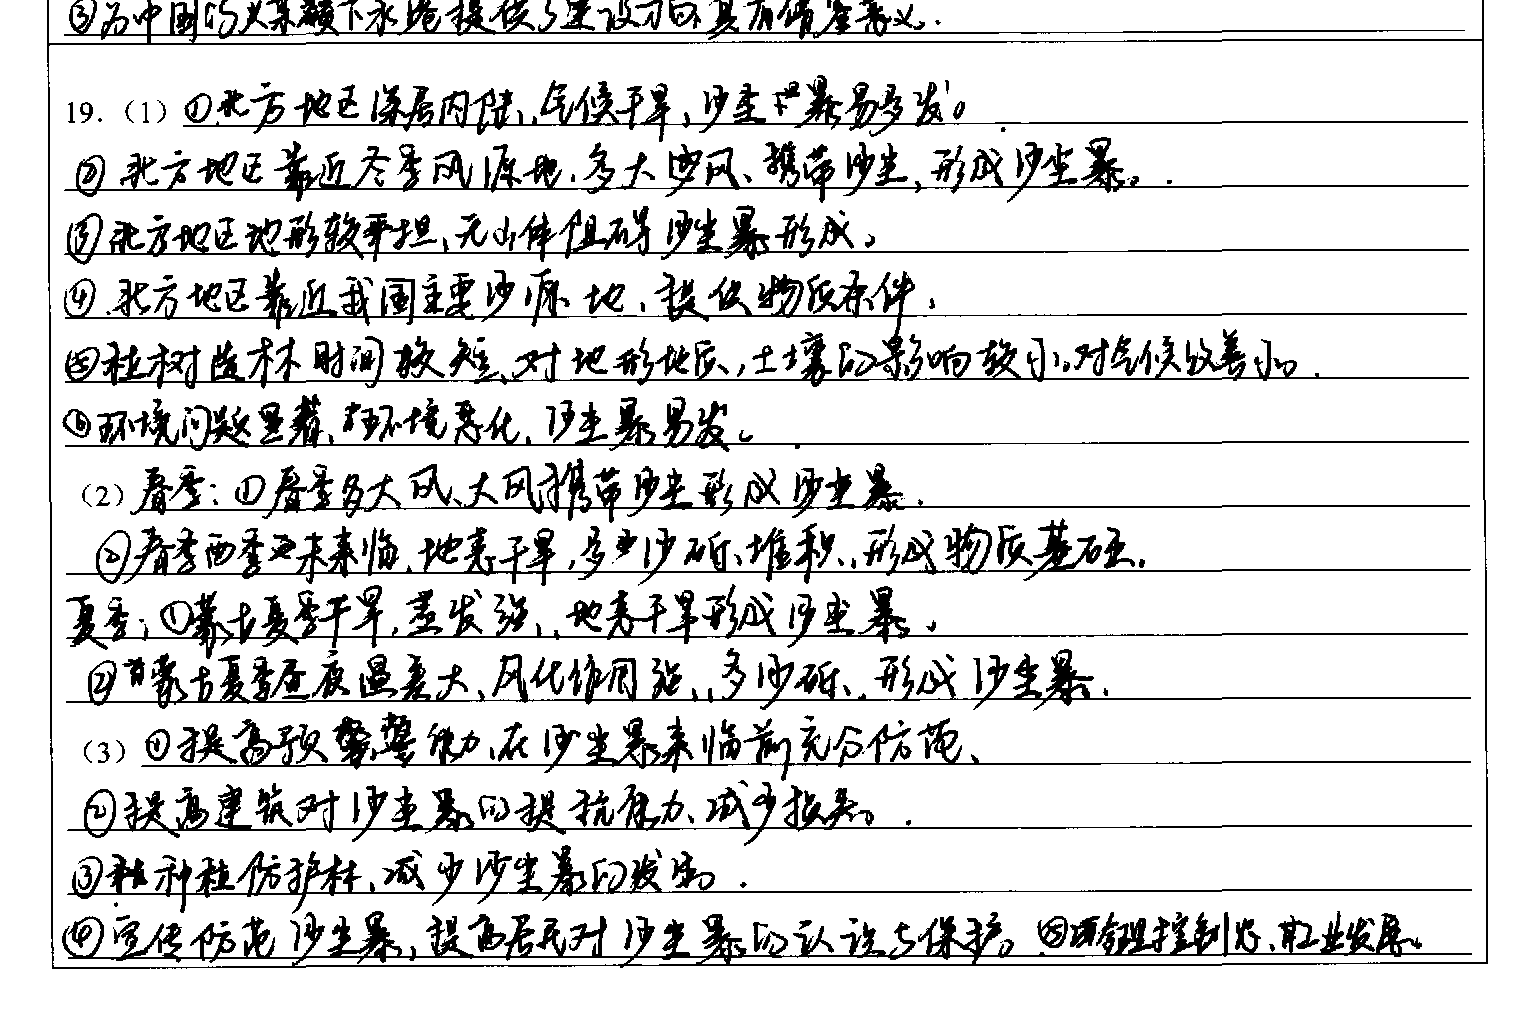 ③为中国的火星额下永驰提供了建设方向具有借鉴意义.
19.（1）①北方地区深居内陆,气候干旱,沙尘暴易多发。
②北方地区靠近冬季风源地,多大沙风、携带沙尘,形成沙尘暴。
③北方地区地形较平坦,无山体阻碍沙尘暴形成。
④北方地区靠近我国主要沙源地,提供物质条件,
⑤植树造林时间较短、对地形地质,土壤的影响较小,对气候改善小。
⑥环境问题显著,环境恶化,沙尘暴易发。
（2）春季:①春季多大风、大风携带沙尘形成沙尘暴.
②春季雨季还未来临,地表干旱,多沙砾、堆积,形成物质基础.
夏季:①蒙古夏季干旱,蒸发强,地表干旱形成沙尘暴。
②蒙古夏季昼夜温差大,风化作用强,多沙砾、形成沙尘暴.
（3）①提高预警能力,在沙尘暴来临前充分防范、
②提高建筑对沙尘暴的提抗能力、减少损失。
③种植防护林、减少沙尘暴的发生。
④宣传防范沙尘暴,提高居民对沙尘暴的认识与保护。⑤合理控制农、工业发展。